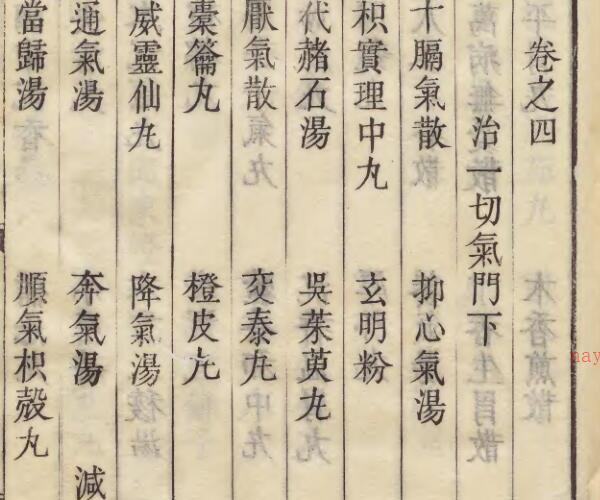 卷之四
治一切氣門下
十膈氣散 抑心氣湯
枳實理中丸 玄明粉
代赭石湯 吳茱萸丸
厭氣散 交泰丸
橐籥丸 橙皮丸
威靈仙丸 降氣湯
通氣湯 奔氣湯 減
當歸湯 順氣枳殼丸
nay